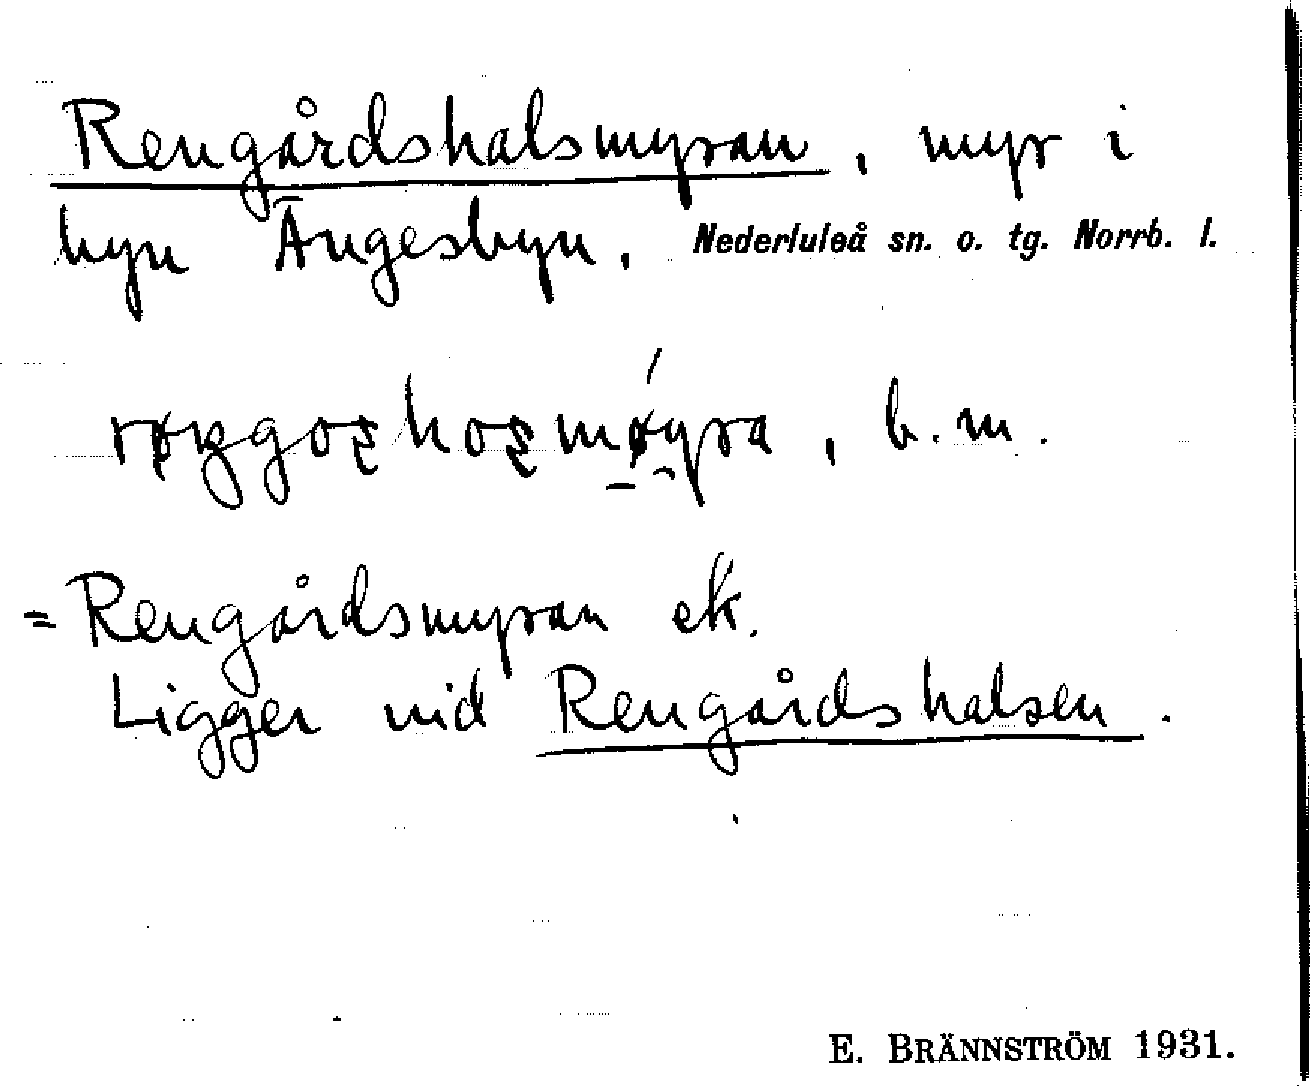 Rengårdshalsmyran, myr i
byn Ängesbyn. Nederluleå sn. o. tg. Norrb. l.
, b. m.
= Rengårdsmyran ek.
Ligger vid Rengårdshalsen.
E. BRÄNNSTRÖM 1931.